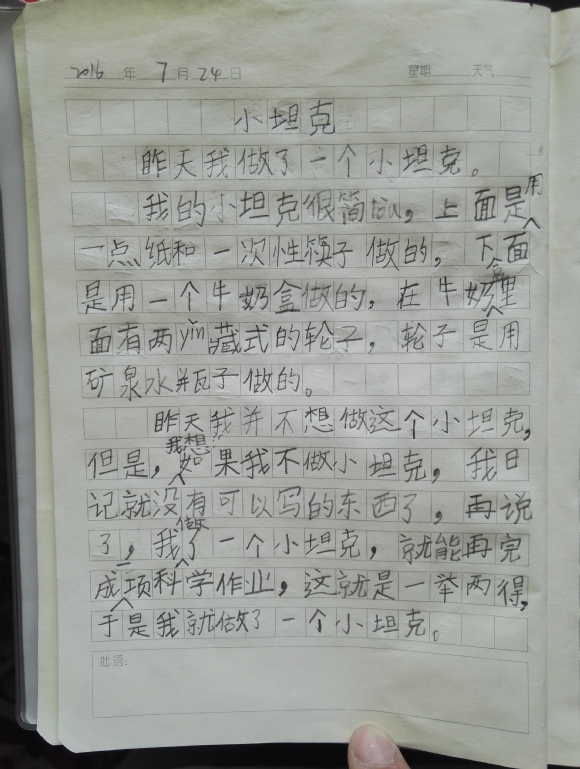 2016年7月24日 星期 天气
小坦克
昨天我做了一个小坦克。
我的小坦克很简陋，上面是用
一点纸和一次性筷子做的，下面
是用一个牛奶盒做的，在牛奶盒里
面有两yǐn藏式的轮子，轮子是用
矿泉水瓶子做的。
昨天我并不想做这个小坦克，
但是，我想：如果我不做小坦克，我日
记就没有可以写的东西了，再说
了，我做了一个小坦克，就能再完
成一项科学作业，这就是一举两得，
于是我就做了一个小坦克。
批语：